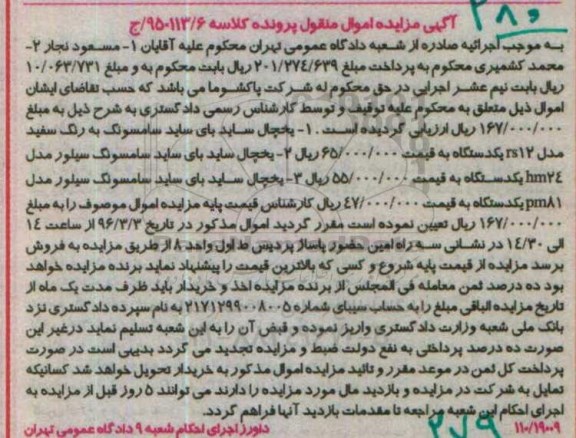 ۲۸۰
آگهی مزایده اموال منقول پرونده کلاسه ۹۵-۱۱۳/۶/ج
به موجب اجرائیه صادره از شعبه دادگاه عمومی تهران محکوم علیه آقایان ۱- مسعود نجار ۲-
محمد کشمیری محکوم به پرداخت مبلغ ۲۰۱/۲۷۴/۶۳۹ ریال بابت محکوم به و مبلغ ۱۰/۰۶۳/۷۳۱
ریال بابت نیم عشر اجرایی در حق محکوم له شرکت پاکشوما می باشد که حسب تقاضای ایشان
اموال ذیل متعلق به محکوم علیه توقیف و توسط کارشناس رسمی دادگستری به شرح ذیل به مبلغ
۱۶۷/۰۰۰/۰۰۰ ریال ارزیابی گردیده است . ۱- یخچال ساید بای ساید سامسونگ به رنگ سفید
مدل rs۱۲ یکدستگاه به قیمت ۶۵/۰۰۰/۰۰۰ ریال ۲- یخچال ساید بای ساید سامسونگ سیلور مدل
hm۲۴ یکدستگاه به قیمت ۵۵/۰۰۰/۰۰۰ ریال ۳- یخچال ساید بای ساید سامسونگ سیلور مدل
pm۸۱ یکدستگاه به قیمت ۴۷/۰۰۰/۰۰۰ ریال کارشناس قیمت پایه مزایده اموال موصوف را به مبلغ
۱۶۷/۰۰۰/۰۰۰ ریال تعیین نموده است مقرر گردید اموال مذکور در تاریخ ۹۶/۳/۳ از ساعت ۱۴
الی ۱۴/۳۰ در نشانی سه راه امین حضور پاساژ پردیس ط اول واحد ۸ از طریق مزایده به فروش
برسد مزایده از قیمت پایه شروع و کسی که بالاترین قیمت را پیشنهاد نماید برنده مزایده خواهد
بود ده درصد ثمن معامله فی المجلس از برنده مزایده اخذ و خریدار باید ظرف مدت یک ماه از
تاریخ مزایده الباقی مبلغ را به حساب سیبای شماره ۲۱۷۱۲۹۹۰۰۸۰۰۵ به نام سپرده دادگستری نزد
بانک ملی شعبه وزارت دادگستری واریز نموده و قبض آن را به این شعبه تسلیم نماید درغیر این
صورت ده درصد پرداختی به نفع دولت ضبط و مزایده تجدید می گردد بدیهی است در صورت
پرداخت کل ثمن در موعد مقرر و تائید مزایده اموال مذکور به خریدار تحویل خواهد شد کسانیکه
تمایل به شرکت در مزایده و بازدید مال مورد مزایده را دارند می توانند ۵ روز قبل از مزایده به
اجرای احکام این شعبه مراجعه تا مقدمات بازدید آنها فراهم گردد.
۱۱۰/۱۹۰۰۹ ۲۷۹ داورز اجرای احکام شعبه ۹ دادگاه عمومی تهران